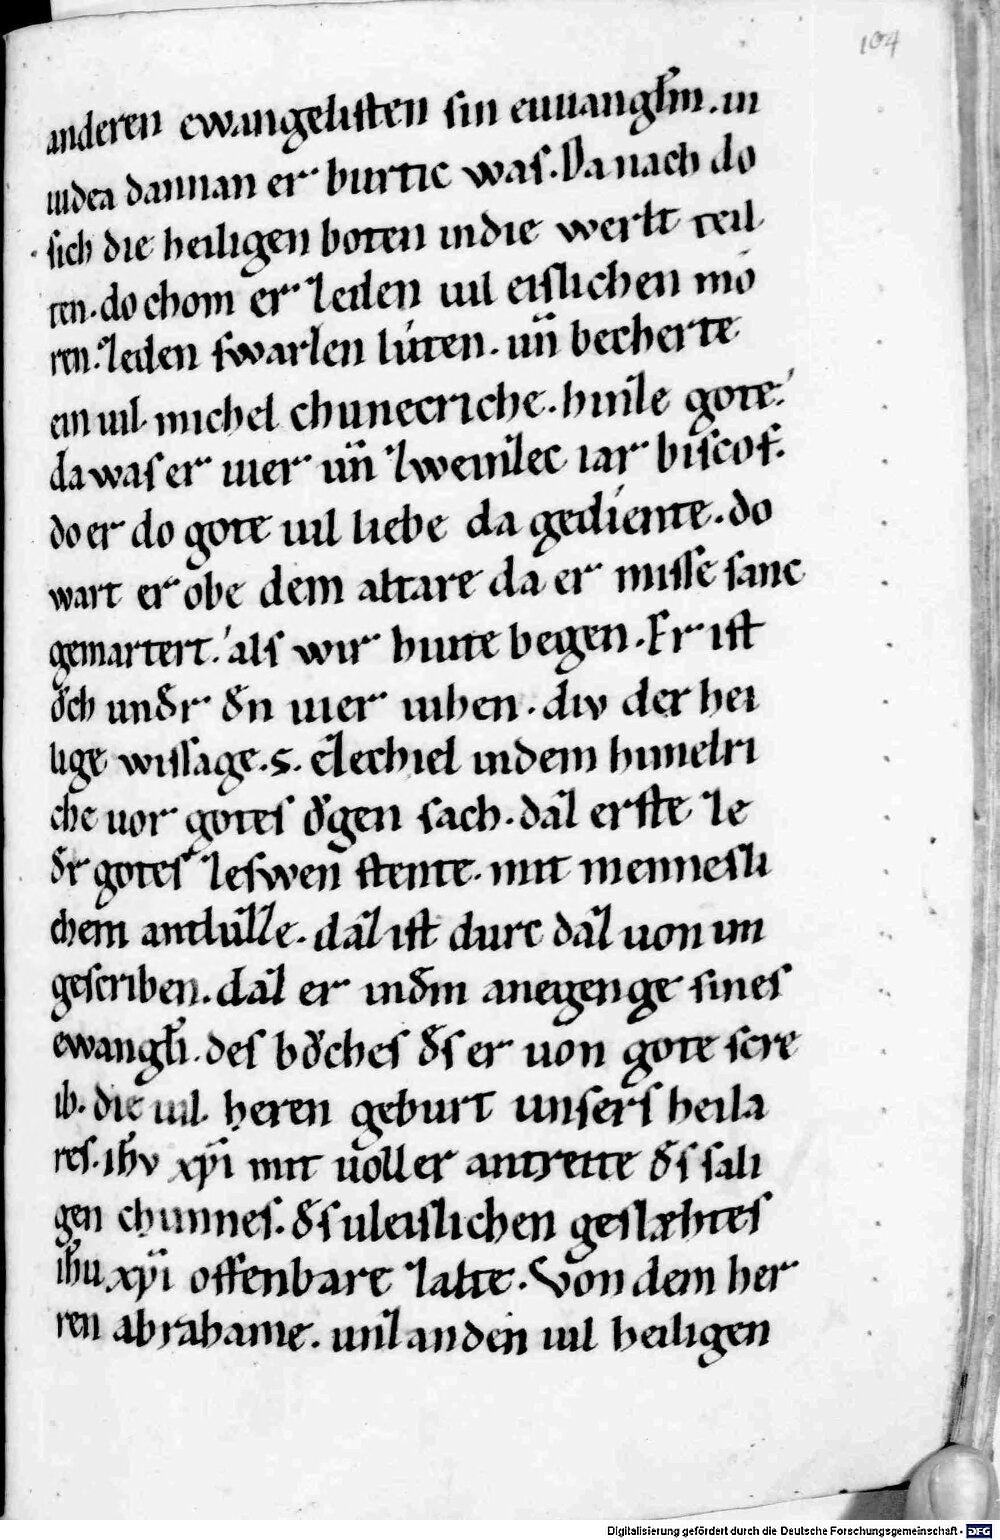 104
anderen ewangelisten sin euuangl̄m. in
iudea dannan er burtic was. Da nach do
sich die heiligen boten in die werlt teil
ten. do chom er zeden uil eislichen mo
ren. zeden swarzen lúten. un̄ becherte
ein uil michel chunecriche. hinze gote.
da was er uier un̄ zweinzec iar biscof.
do er do gote uil liebe da gediente. do
wart er obe dem altare da er misse sanc
gemartert. als wir hiute begen. Er ist
oͮch undr̄ dn̄ uier uihen. div der hei
lige wissage. S. ezechiel in dem himelri
che uor gotes oͮgen sach. daz erste ze
dr̄ gotes zeswen stente. mit mennesli
chem antluzze. daz ist durc daz uon im
gescriben. daz er in dm̄ anegenge sines
ewangl̄i. des boͮches ds̄ er uon gote scre
ib. die uil heren geburt unsers heila
res. ih̄v xp̄i mit uoller antreite ds̄ sali
gen chunnes. ds̄ uleislichen geslæhtes
ih̄u xp̄i offenbare zalte. Von dem her
ren abrahame. unz an den uil heiligen
Digitalisierung gefördert durch die Deutsche Forschungsgemeinschaft - DFG